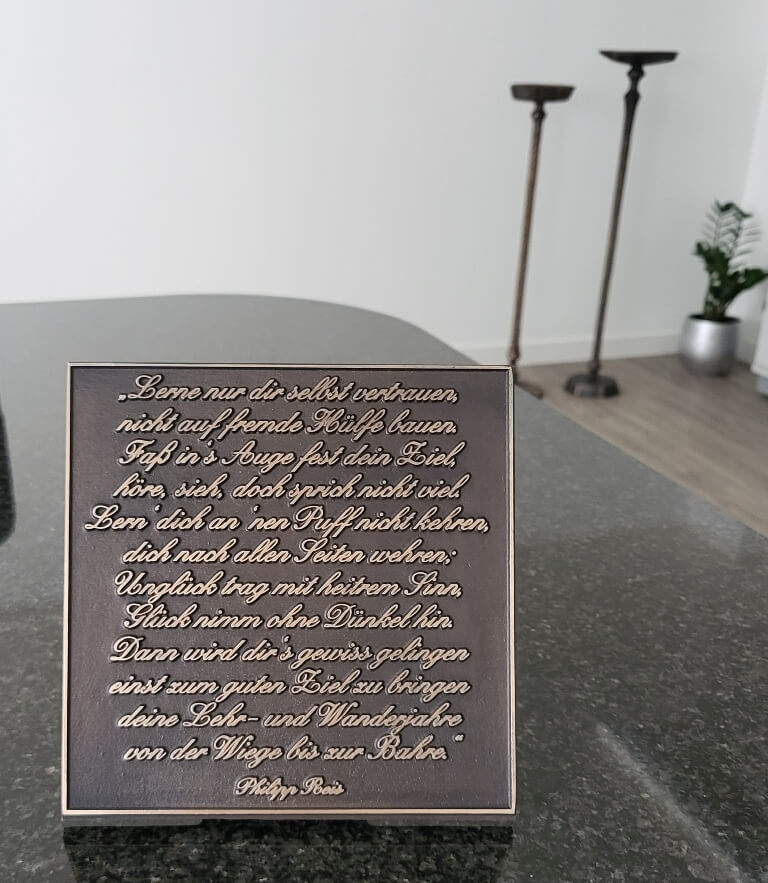 „Lerne nur dir selbst vertrauen,
nicht auf fremde Hülfe bauen.
Faß in's Auge fest dein Ziel,
höre, sieh, doch sprich nicht viel.
Lern' dich an 'nen Puff nicht kehren,
dich nach allen Seiten wehren;
Unglück trag mit heitrem Sinn,
Glück nimm ohne Dünkel hin.
Dann wird dir's gewiss gelingen
einst zum guten Ziel zu bringen
deine Lehr- und Wanderjahre
von der Wiege bis zur Bahre.“
Philipp Reis